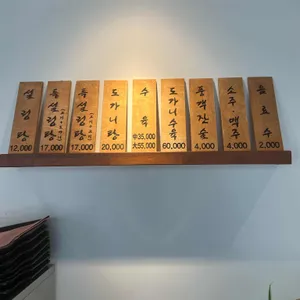 설렁탕
12,000
특설렁탕
17,000
특설렁탕
17,000
도가니탕
20,000
수육
中35,000
大55,000
도가니수육
60,000
4,000
소주·맥주
4,000
음료수
2,000